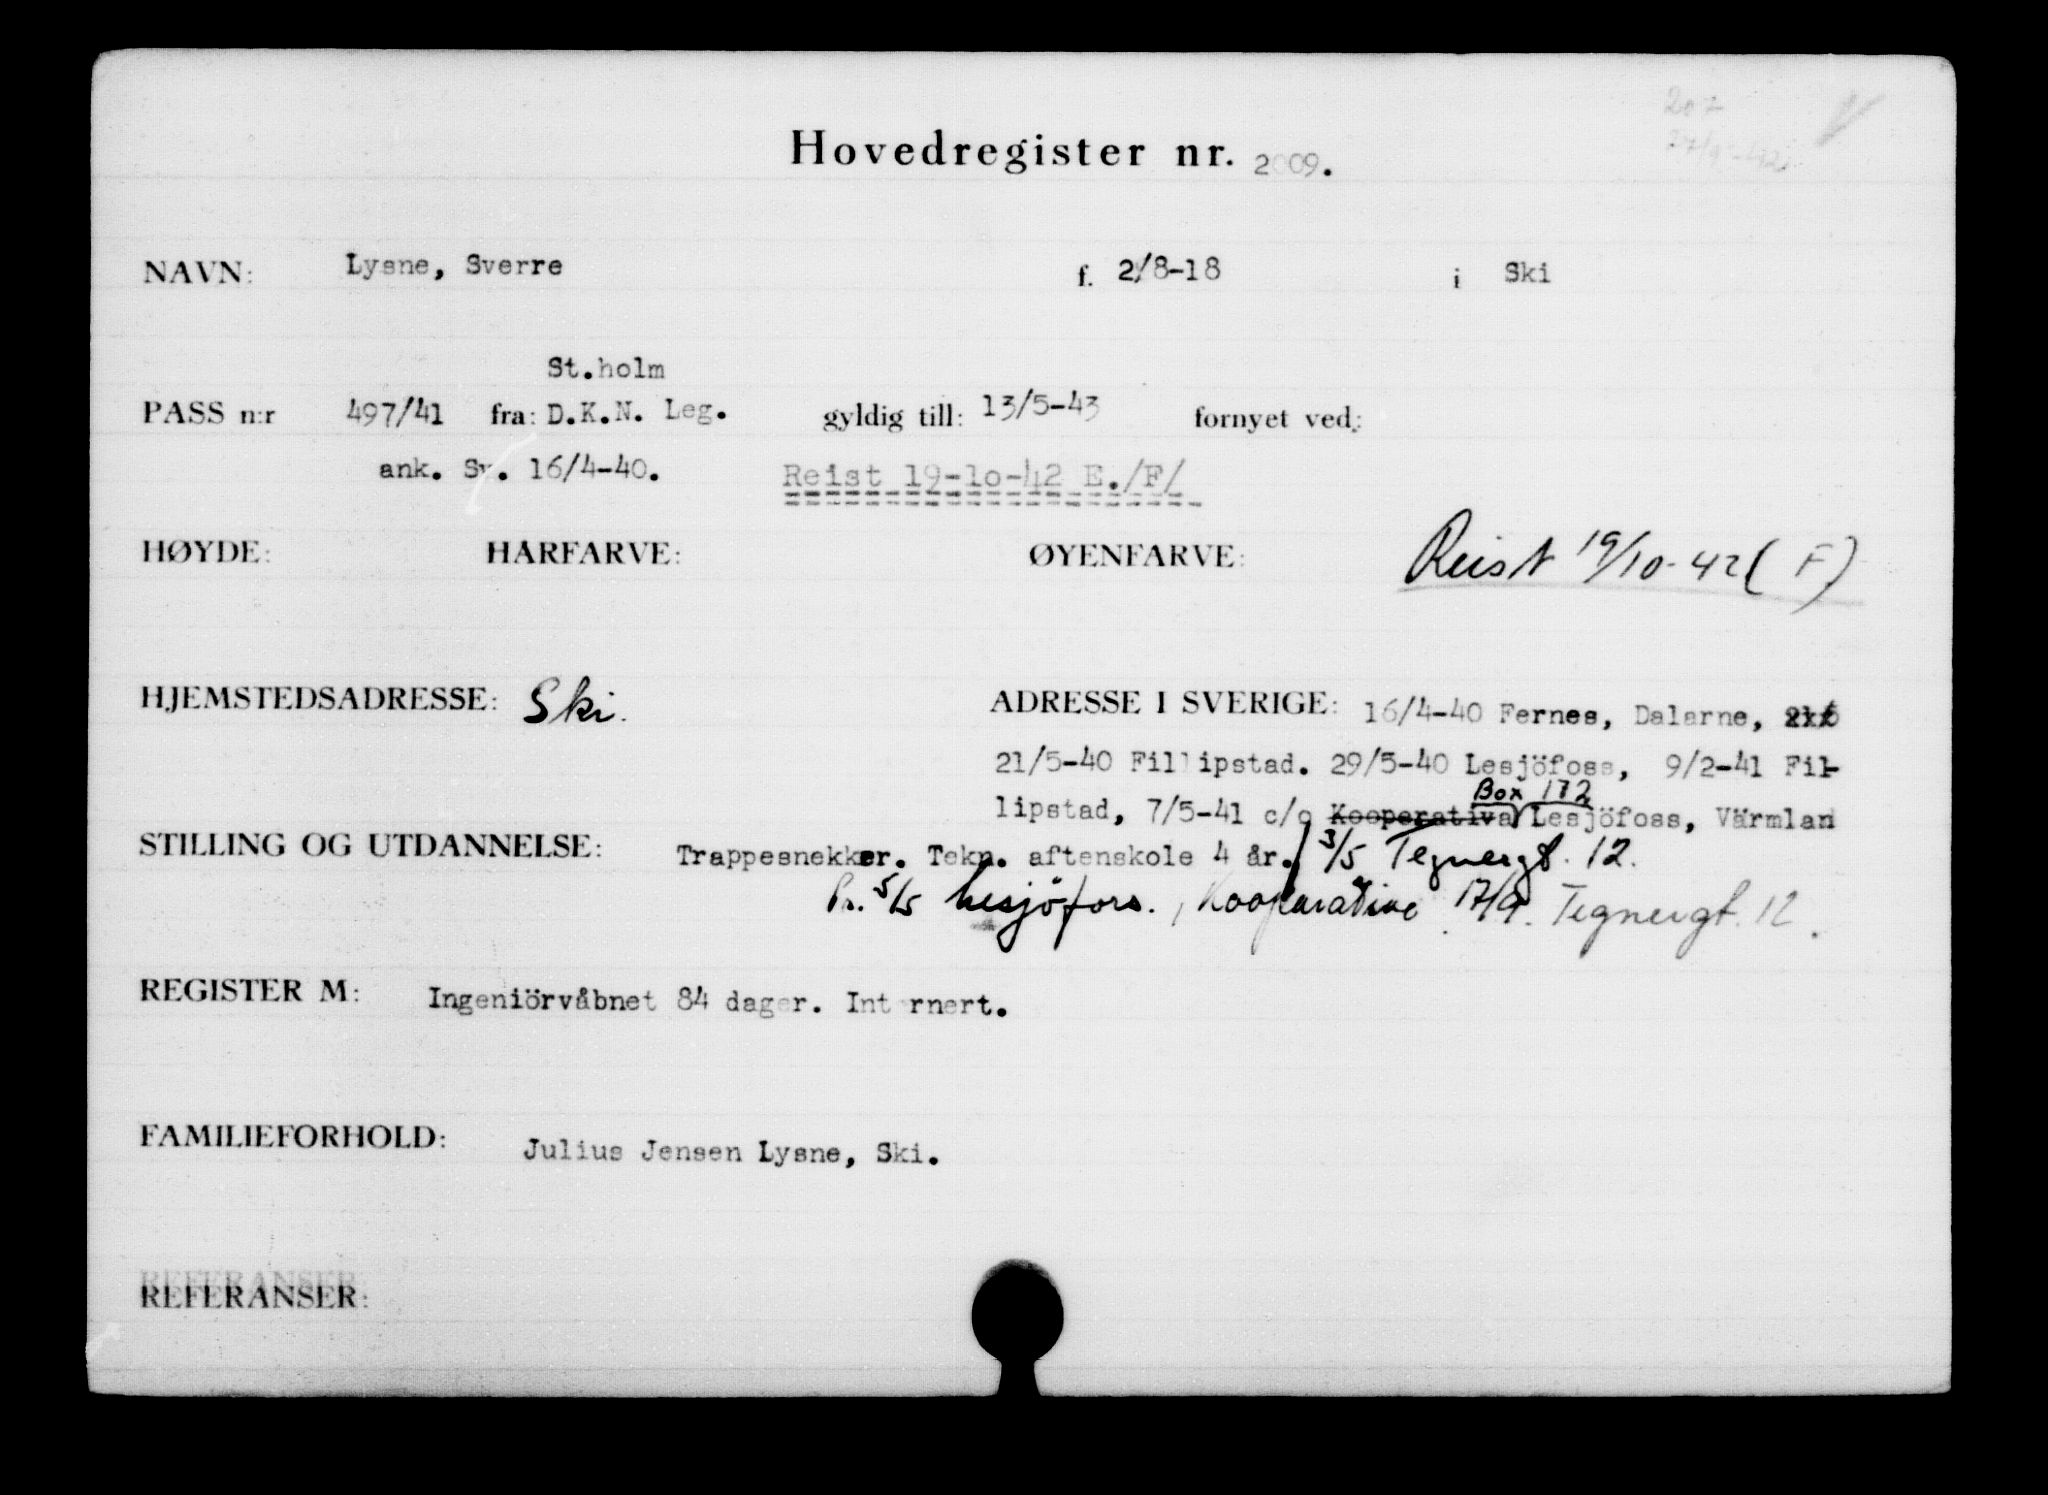 207
27/9-42
Hovedregister nr. 2009.
NAVN: Lysne, Sverre f. 2/8-18 i Ski
St.holm
PASS n:r 497/41 fra: D.K.N. Leg. gyldig till: 13/5-43 fornyet ved:
ank. Sv. 16/4-40. Reist 19-10-42 E./F/
HØYDE: HÅRFARVE: ØYENFARVE: Reist 19/10-42 (F)
HJEMSTEDSADRESSE: Ski. ADRESSE I SVERIGE: 16/4-40 Fernes, Dalarne,
21/5-40 Fillipstad. 29/5-40 Lesjöfoss, 9/2-41 Fil-
Box 172
lipstad, 7/5-41 c/o Kooperativa Lesjöfoss, Värmlan
STILLING OG UTDANNELSE: Trappesnekker. Tekn. aftenskole 4 år. 3/5 Tegnergt. 12.
5/5 Lesjöfors., Kooperative 17/9. Tegnergt. 12.
REGISTER M: Ingeniörvåbnet 84 dager. Internert.
FAMILIEFORHOLD: Julius Jensen Lysne, Ski.
REFERANSER:
REFERANSER: